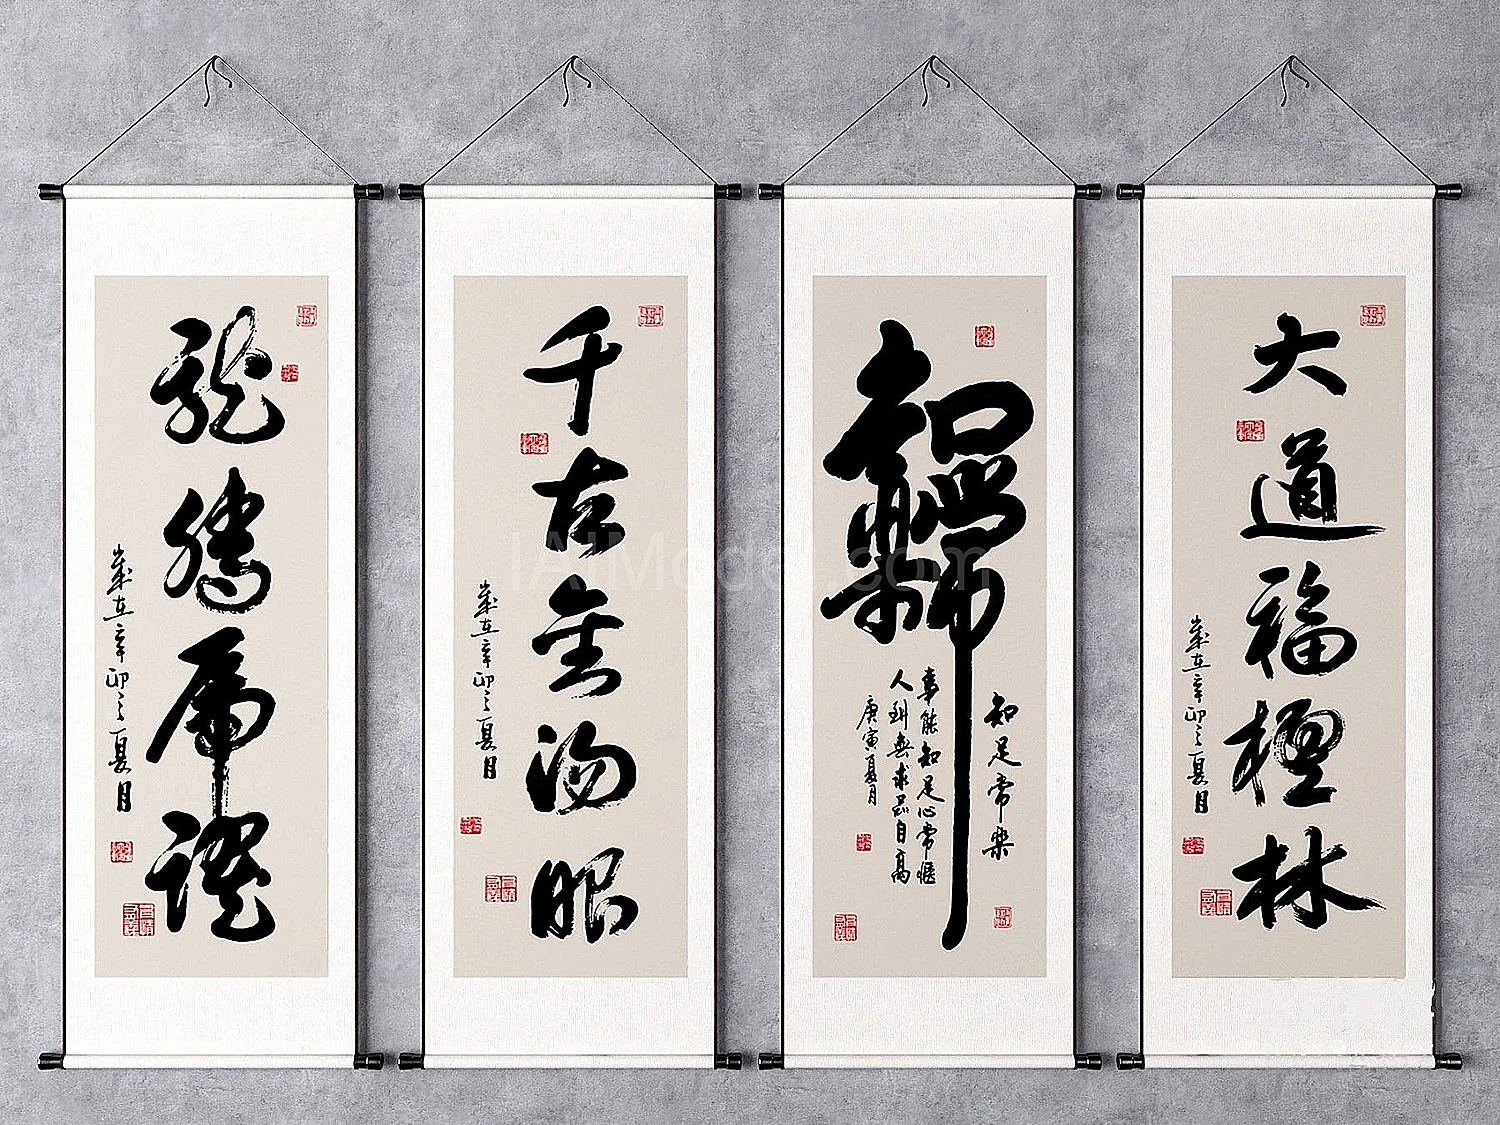 龍騰虎躍
歲在辛卯之夏月
千古眼
歲在辛卯之夏月
知足常樂
知足常樂
事能知足心常愜
人到無求品自高
庚寅夏月
大道福林
歲在辛卯之夏月
IAiModel.com